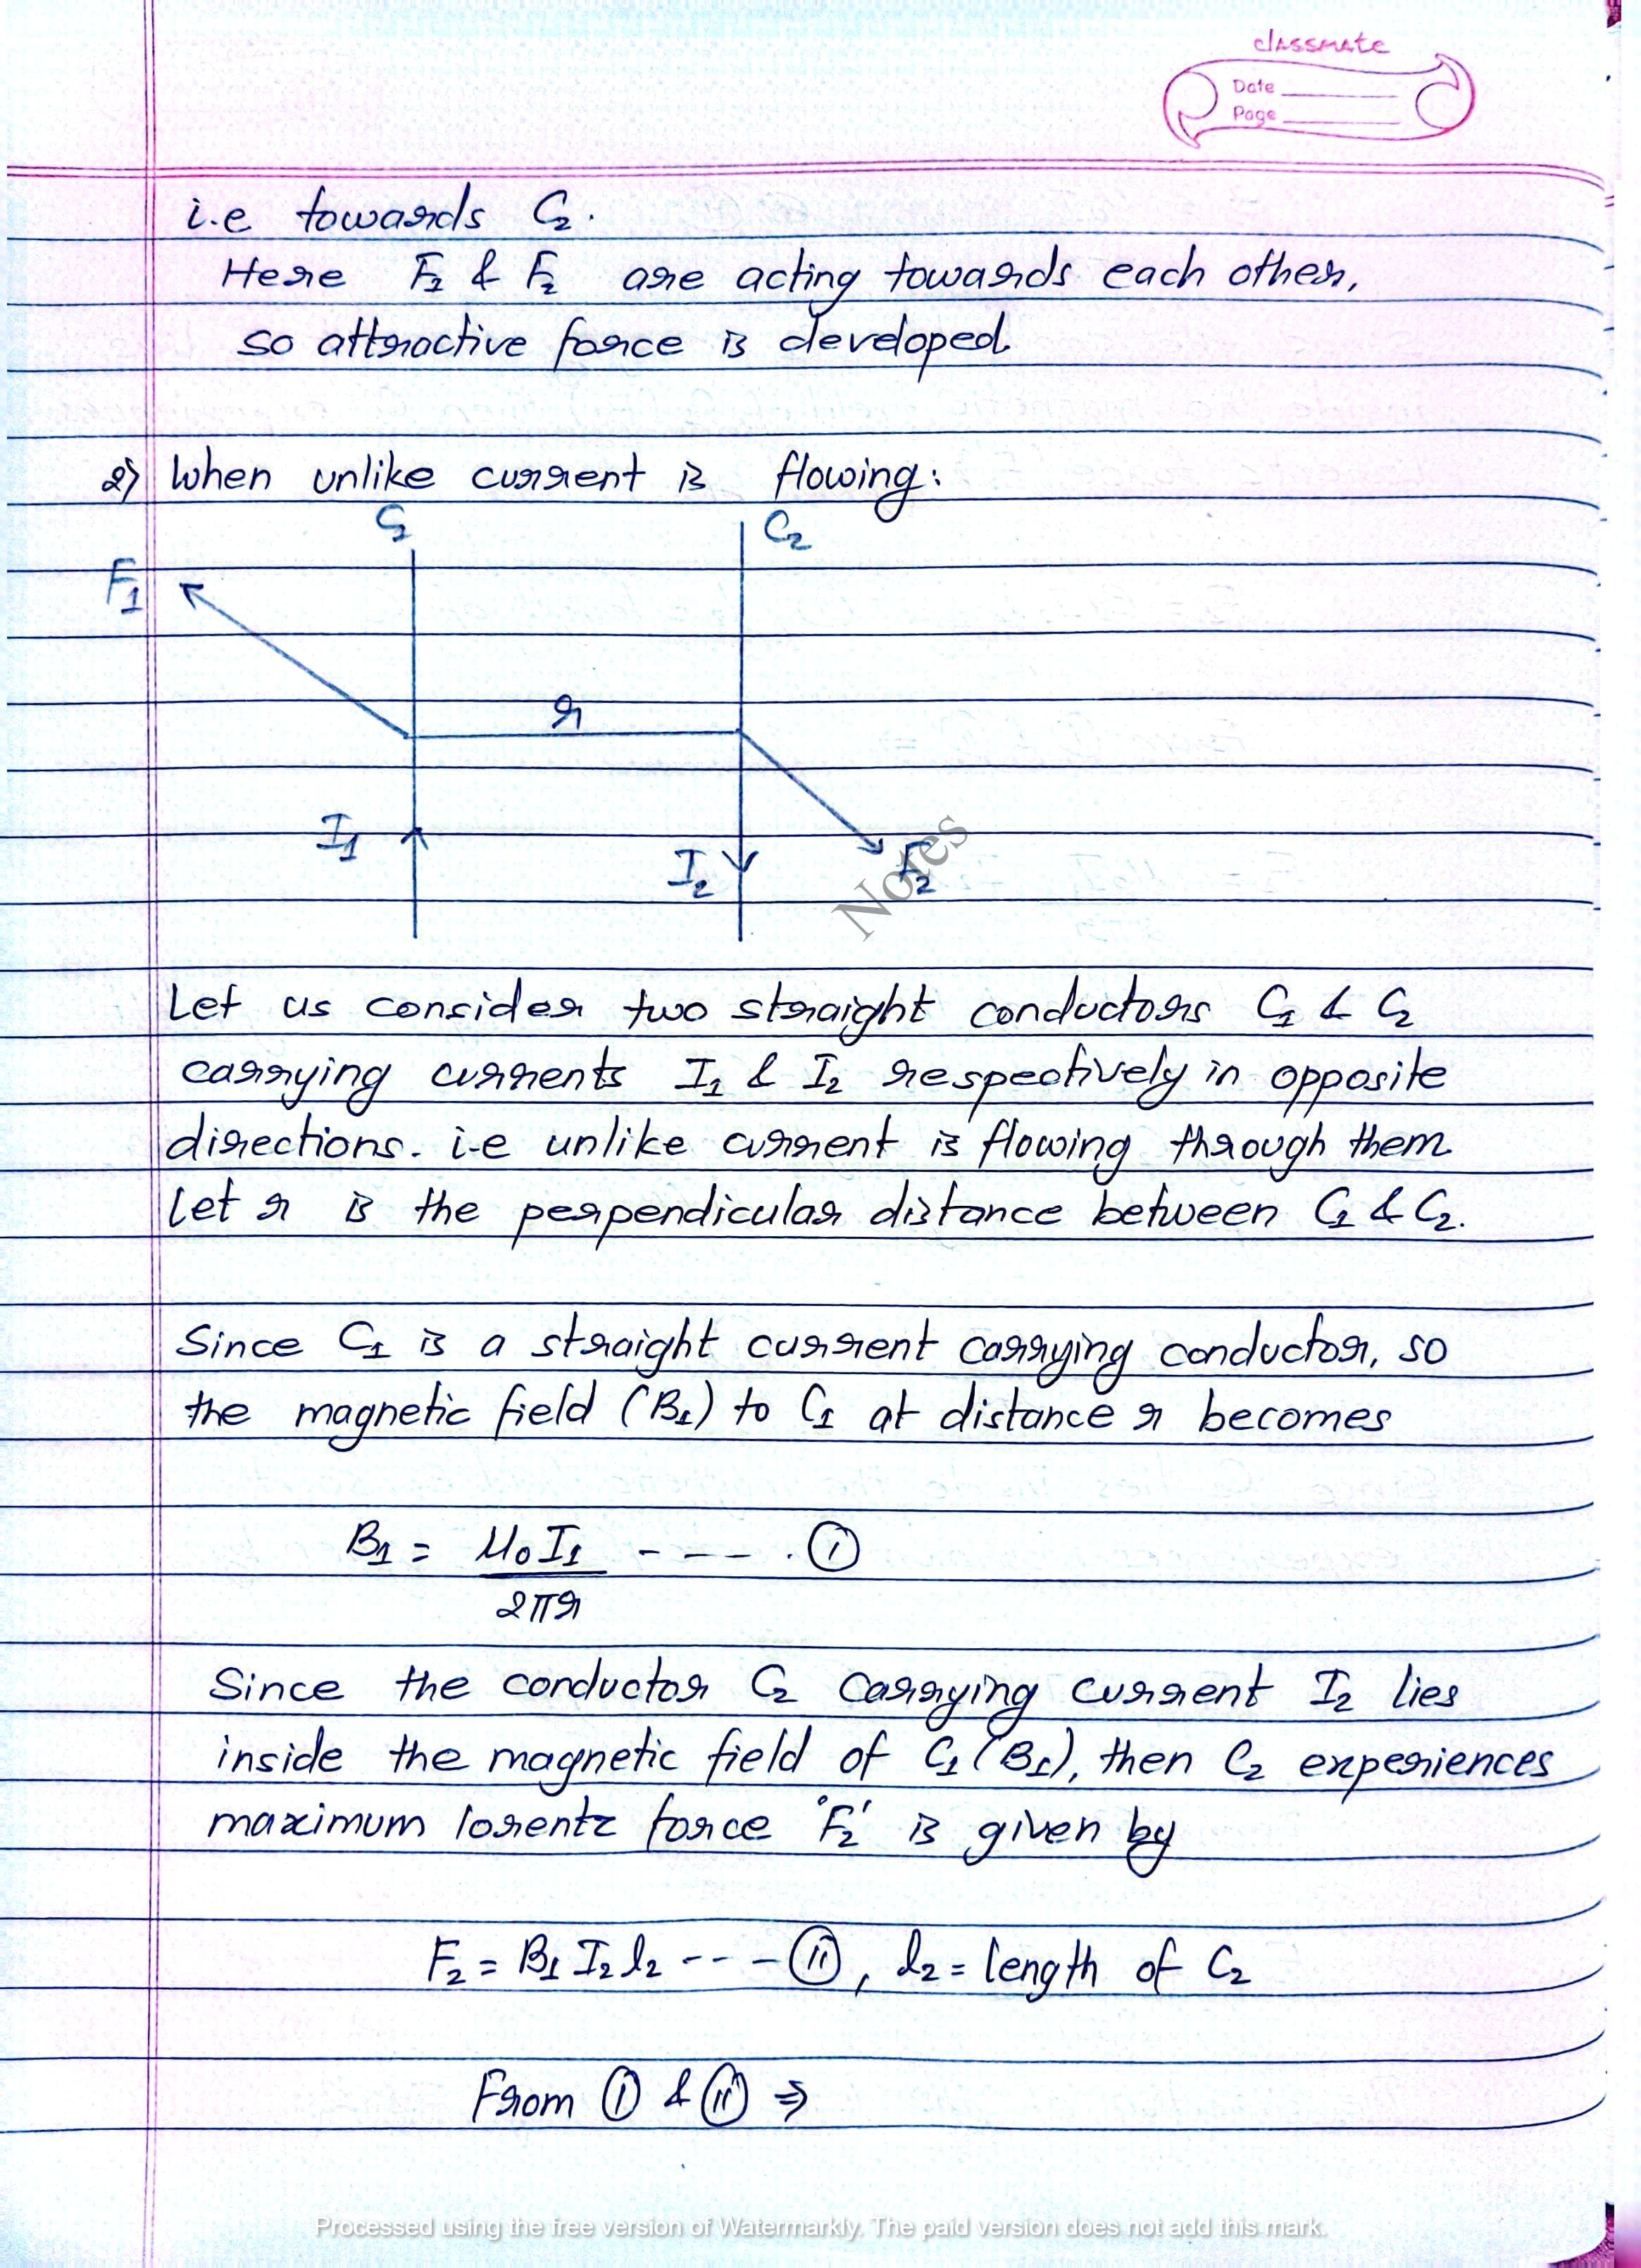 classmate
Date
Page
i.e towards C₂.
Here F₁ & F₂ are acting towards each other,
so attractive force is developed.
2) When unlike current is flowing:
C₁
C₂
F₁
r
I₁
I₂
F₂
Notes
Let us consider two straight conductors C₁ & C₂
carrying currents I₁ & I₂ respectively in opposite
directions. i.e unlike current is flowing through them
Let r is the perpendicular distance between C₁ & C₂.
Since C₁ is a straight current carrying conductor, so
the magnetic field (B₁) to C₁ at distance r becomes
B₁ = μ₀I₁ ---- . (i)
2πr
Since the conductor C₂ carrying current I₂ lies
inside the magnetic field of C₁ (B₁), then C₂ experiences
maximum lorentz force 'F₂' is given by
F₂ = B₁ I₂ l₂ --- (ii), l₂ = length of C₂
From (i) & (ii) ⇒
Processed using the free version of Watermarkly. The paid version does not add this mark.